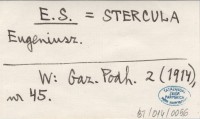 E.S. = STERCULA
Eugeniusz.
W: Gaz. Podh. 2 (1914),
nr 45.